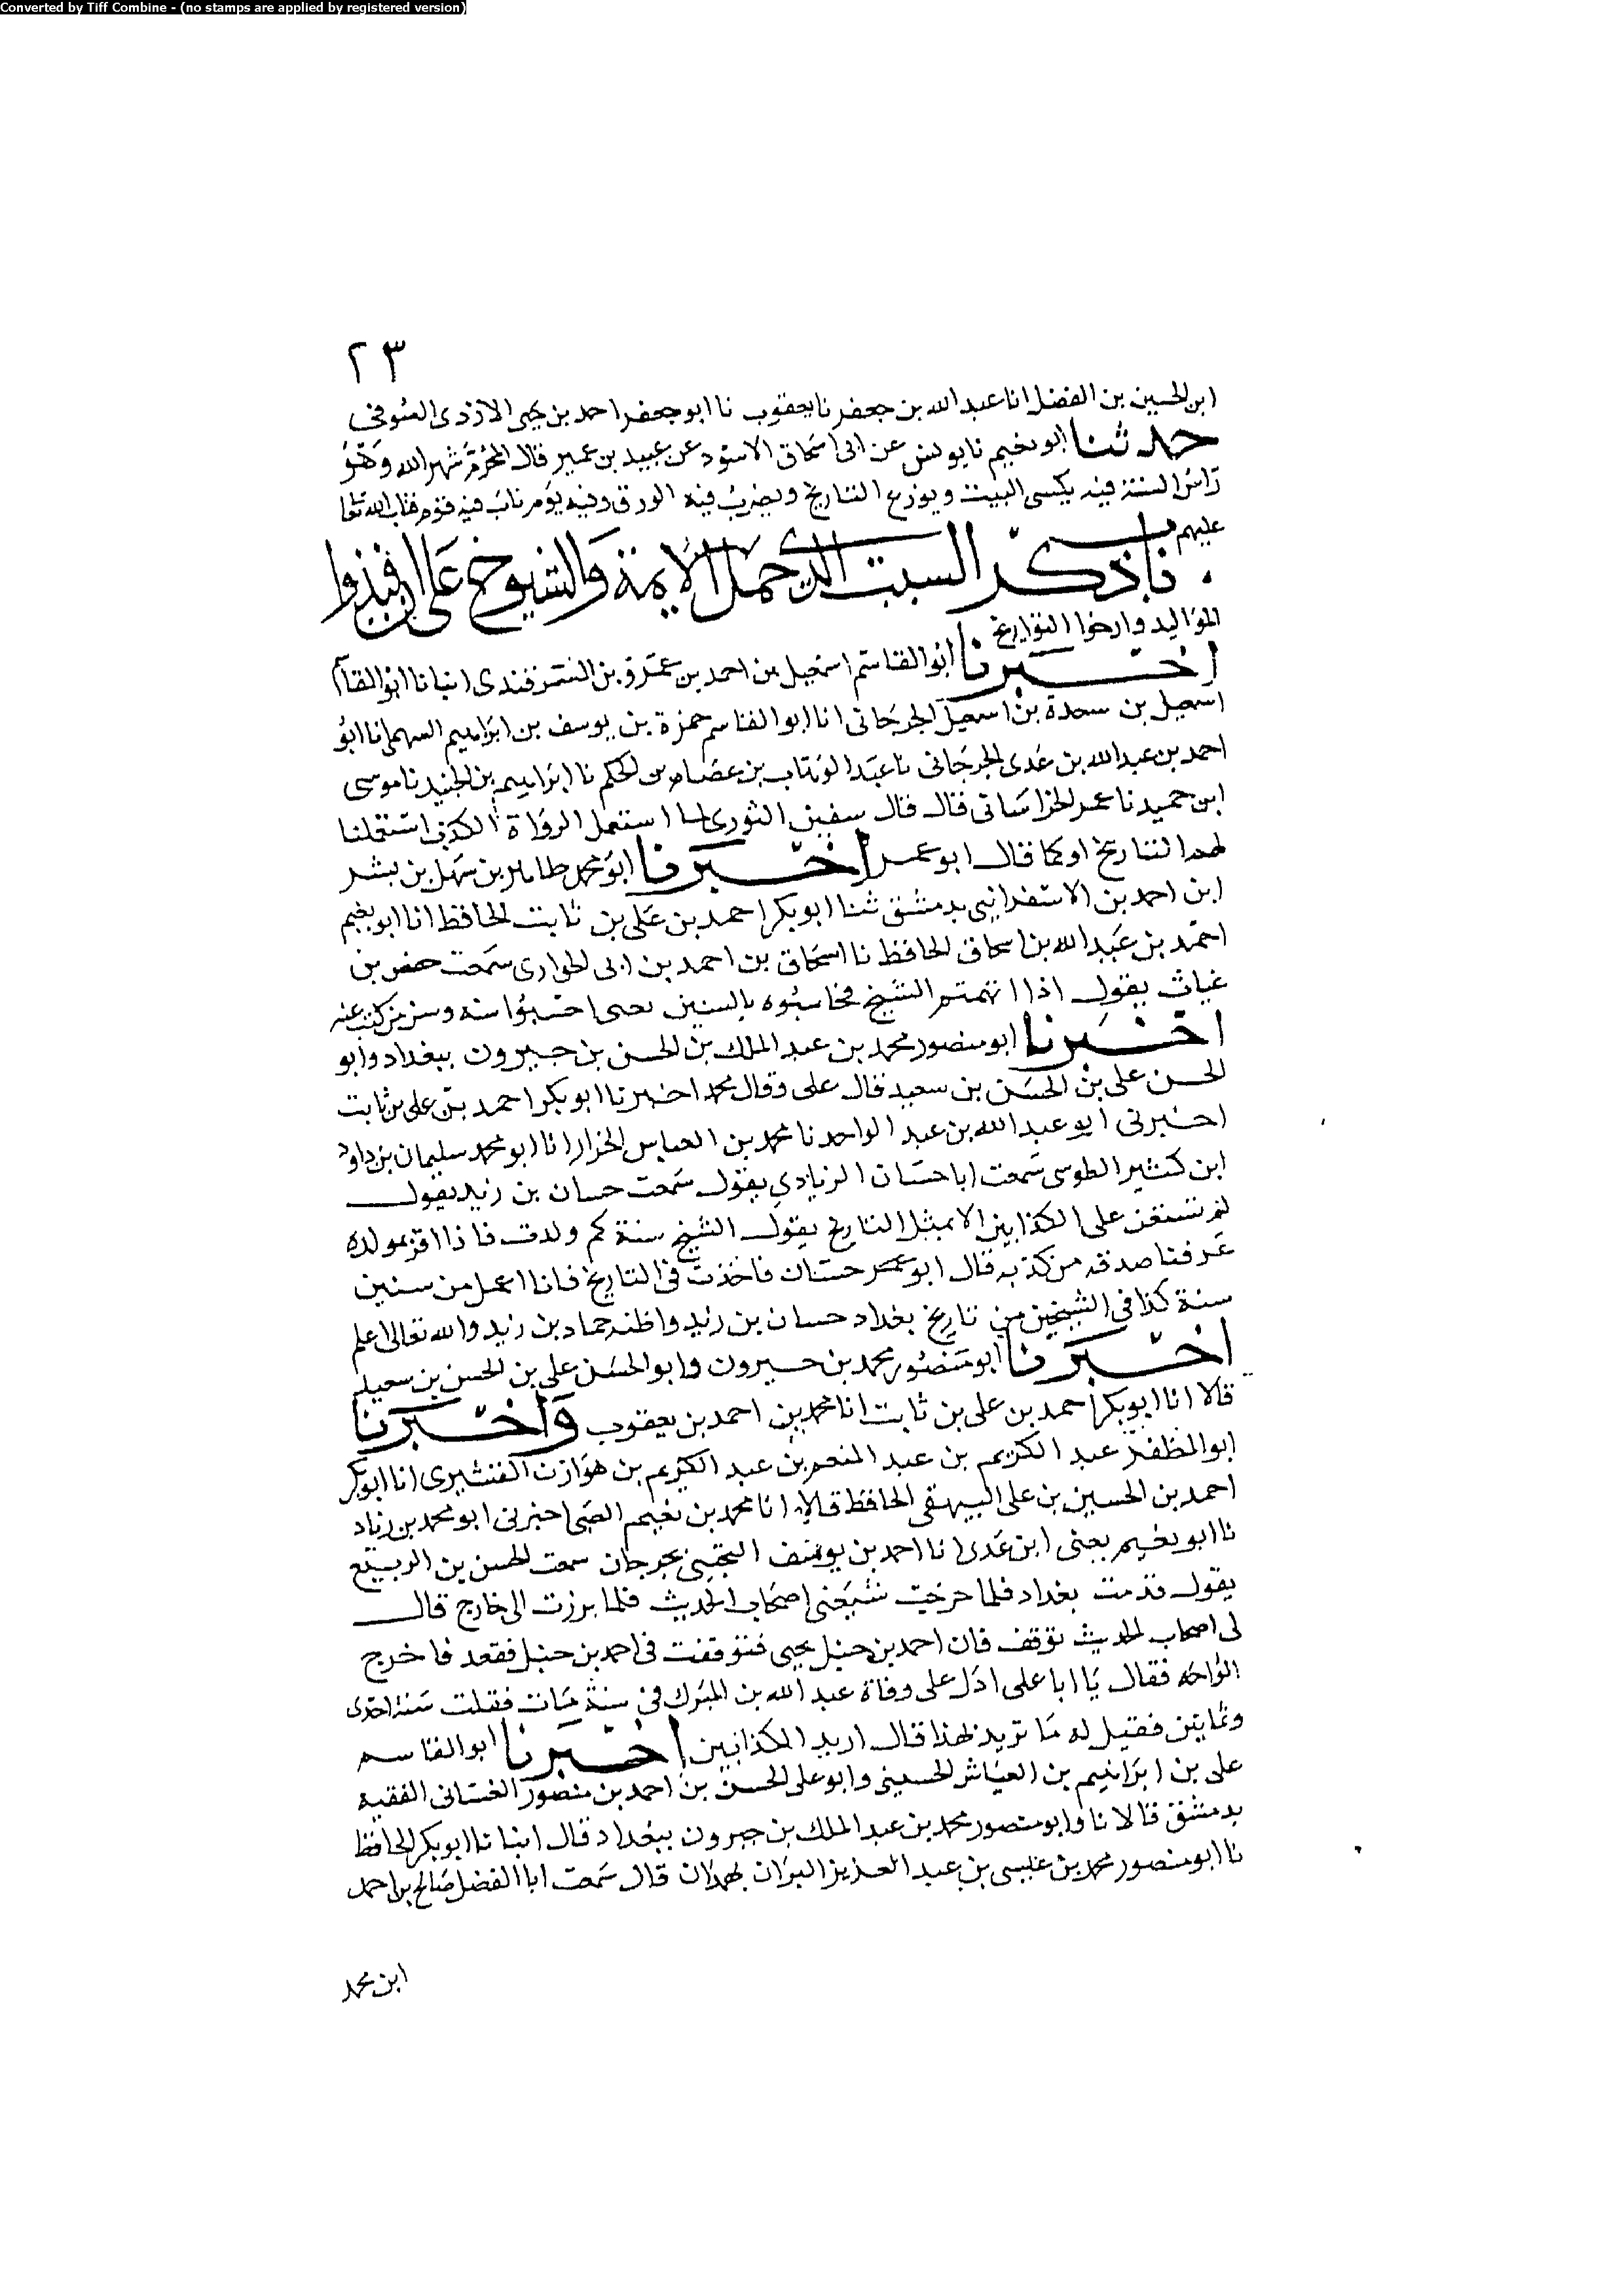 Converted by Tiff Combine - (no stamps are applied by registered version)
٢٣
ابن الحسين بن الفضل انا عبد الله بن جعفر نا يعقوب نا ابو جعفر احمد بن يحيى الازدى الصوفى
حدثنا ابو نعيم نا يونس عن ابى اسحاق الاسود عن عبيد بن عمير قال المحرم شهر الله وهو
راس السنة فيه يكسى البيت ويورخ التاريخ ويضرب فيه الورق وفيه يوم تاب فيه قوم فتاب الله تعا
عليهم
باب ذكر السبب الذى حمل الايمة والشيوخ على ان قيدوا
المواليد وارخوا التواريخ
اخبرنا ابو القاسم اسمعيل بن احمد بن عمر بن السمرقندى انبانا ابو القاسم
اسمعيل بن سعدة بن اسمعيل الجرجانى انا ابو القاسم حمزة بن يوسف بن ابراهيم السهمى انا ابو
احمد بن عبد الله بن عدى الجرجانى نا عبد الوهاب بن عصام بن الحكم نا ابراهيم بن الجنيد نا موسى
ابن حميد نا عمر الخراسانى قال قال سفين الثورى لما استعمل الرواة الكذب استعملنا
لهم التاريخ او كما قال ابو عمر اخبرنا ابو محمد طاهر بن سهل بن بشر
ابن احمد بن الاسفراينى بدمشق ثنا ابو بكر احمد بن على بن ثابت الحافظ انا ابو نعيم
احمد بن عبد الله بن اسحاق الحافظ نا اسحاق بن احمد بن ابى الحوارى سمعت حفص بن
غياث يقول اذا اتهمتم الشيخ فحاسبوه بالسنين يعنى احسبوا سنه وسن من كتب عنه
اخبرنا ابو منصور محمد بن عبد الملك بن الحسن بن خيرون ببغداد وابو
الحسن على بن الحسن بن سعيد قال على وقال محمد اخبرنا ابو بكر احمد بن على بن ثابت
اخبرنى ابو عبد الله بن عبد الواحد نا محمد بن العباس الخزار انا ابو محمد سليمان بن داود
ابن كثير الطوسى سمعت ابا حسان الزيادى يقول سمعت حسان بن زيد يقول
لم نستعن على الكذابين الا بمثل التاريخ يقول الشيخ سنة كم ولدت فاذا اقر بمولده
عرفنا صدقه من كذبه قال ابو عمر حسان فاخذت فى التاريخ فانا اعمل من سنين
سنة كذا فى الشيخين من تاريخ بغداد حسان بن زيد واظنه حماد بن زيد والله تعالى اعلم
اخبرنا ابو منصور محمد بن خيرون وابو الحسن على بن الحسن بن سعيد
قالا انا ابو بكر احمد بن على بن ثابت انا محمد بن احمد بن يعقوب واخبرنا
ابو المظفر عبد الكريم بن عبد المنعم بن عبد الكريم بن هوازن القشيرى انا ابو بكر
احمد بن الحسين بن على البيهقى الحافظ قالا انا محمد بن نعيم الضبى اخبرنى ابو محمد بن زياد
نا ابو نعيم يعنى ابن عدى نا احمد بن يوسف بجرجان سمعت الحسن بن الربيع
يقول قدمت بغداد فلما خرجت شيعنى اصحاب الحديث فلما برزت الى خارج قال
لى اصحاب الحديث توقف فان احمد بن حنبل يجى فتوقفت فى احمد بن حنبل فقعد فاخرج
الواحه فقال يا ابا على ادل على وفاة عبد الله بن المبرك فى سنة مات فقلت سنة احدى
وثمانين فقيل له ما تريد لهذا قال اريد الكذابين اخبرنا ابو القاسم
على بن ابراهيم بن العباس الحسينى وابو على الحسن بن احمد بن منصور الغسانى الفقيه
بدمشق قالا نا وابو منصور محمد بن عبد الملك بن خيرون ببغداد قال انبانا ابو بكر الحافظ
نا ابو منصور محمد بن عيسى بن عبد العزيز البزان بهمدان قال سمعت ابا الفضل صالح بن احمد
ابن محمد